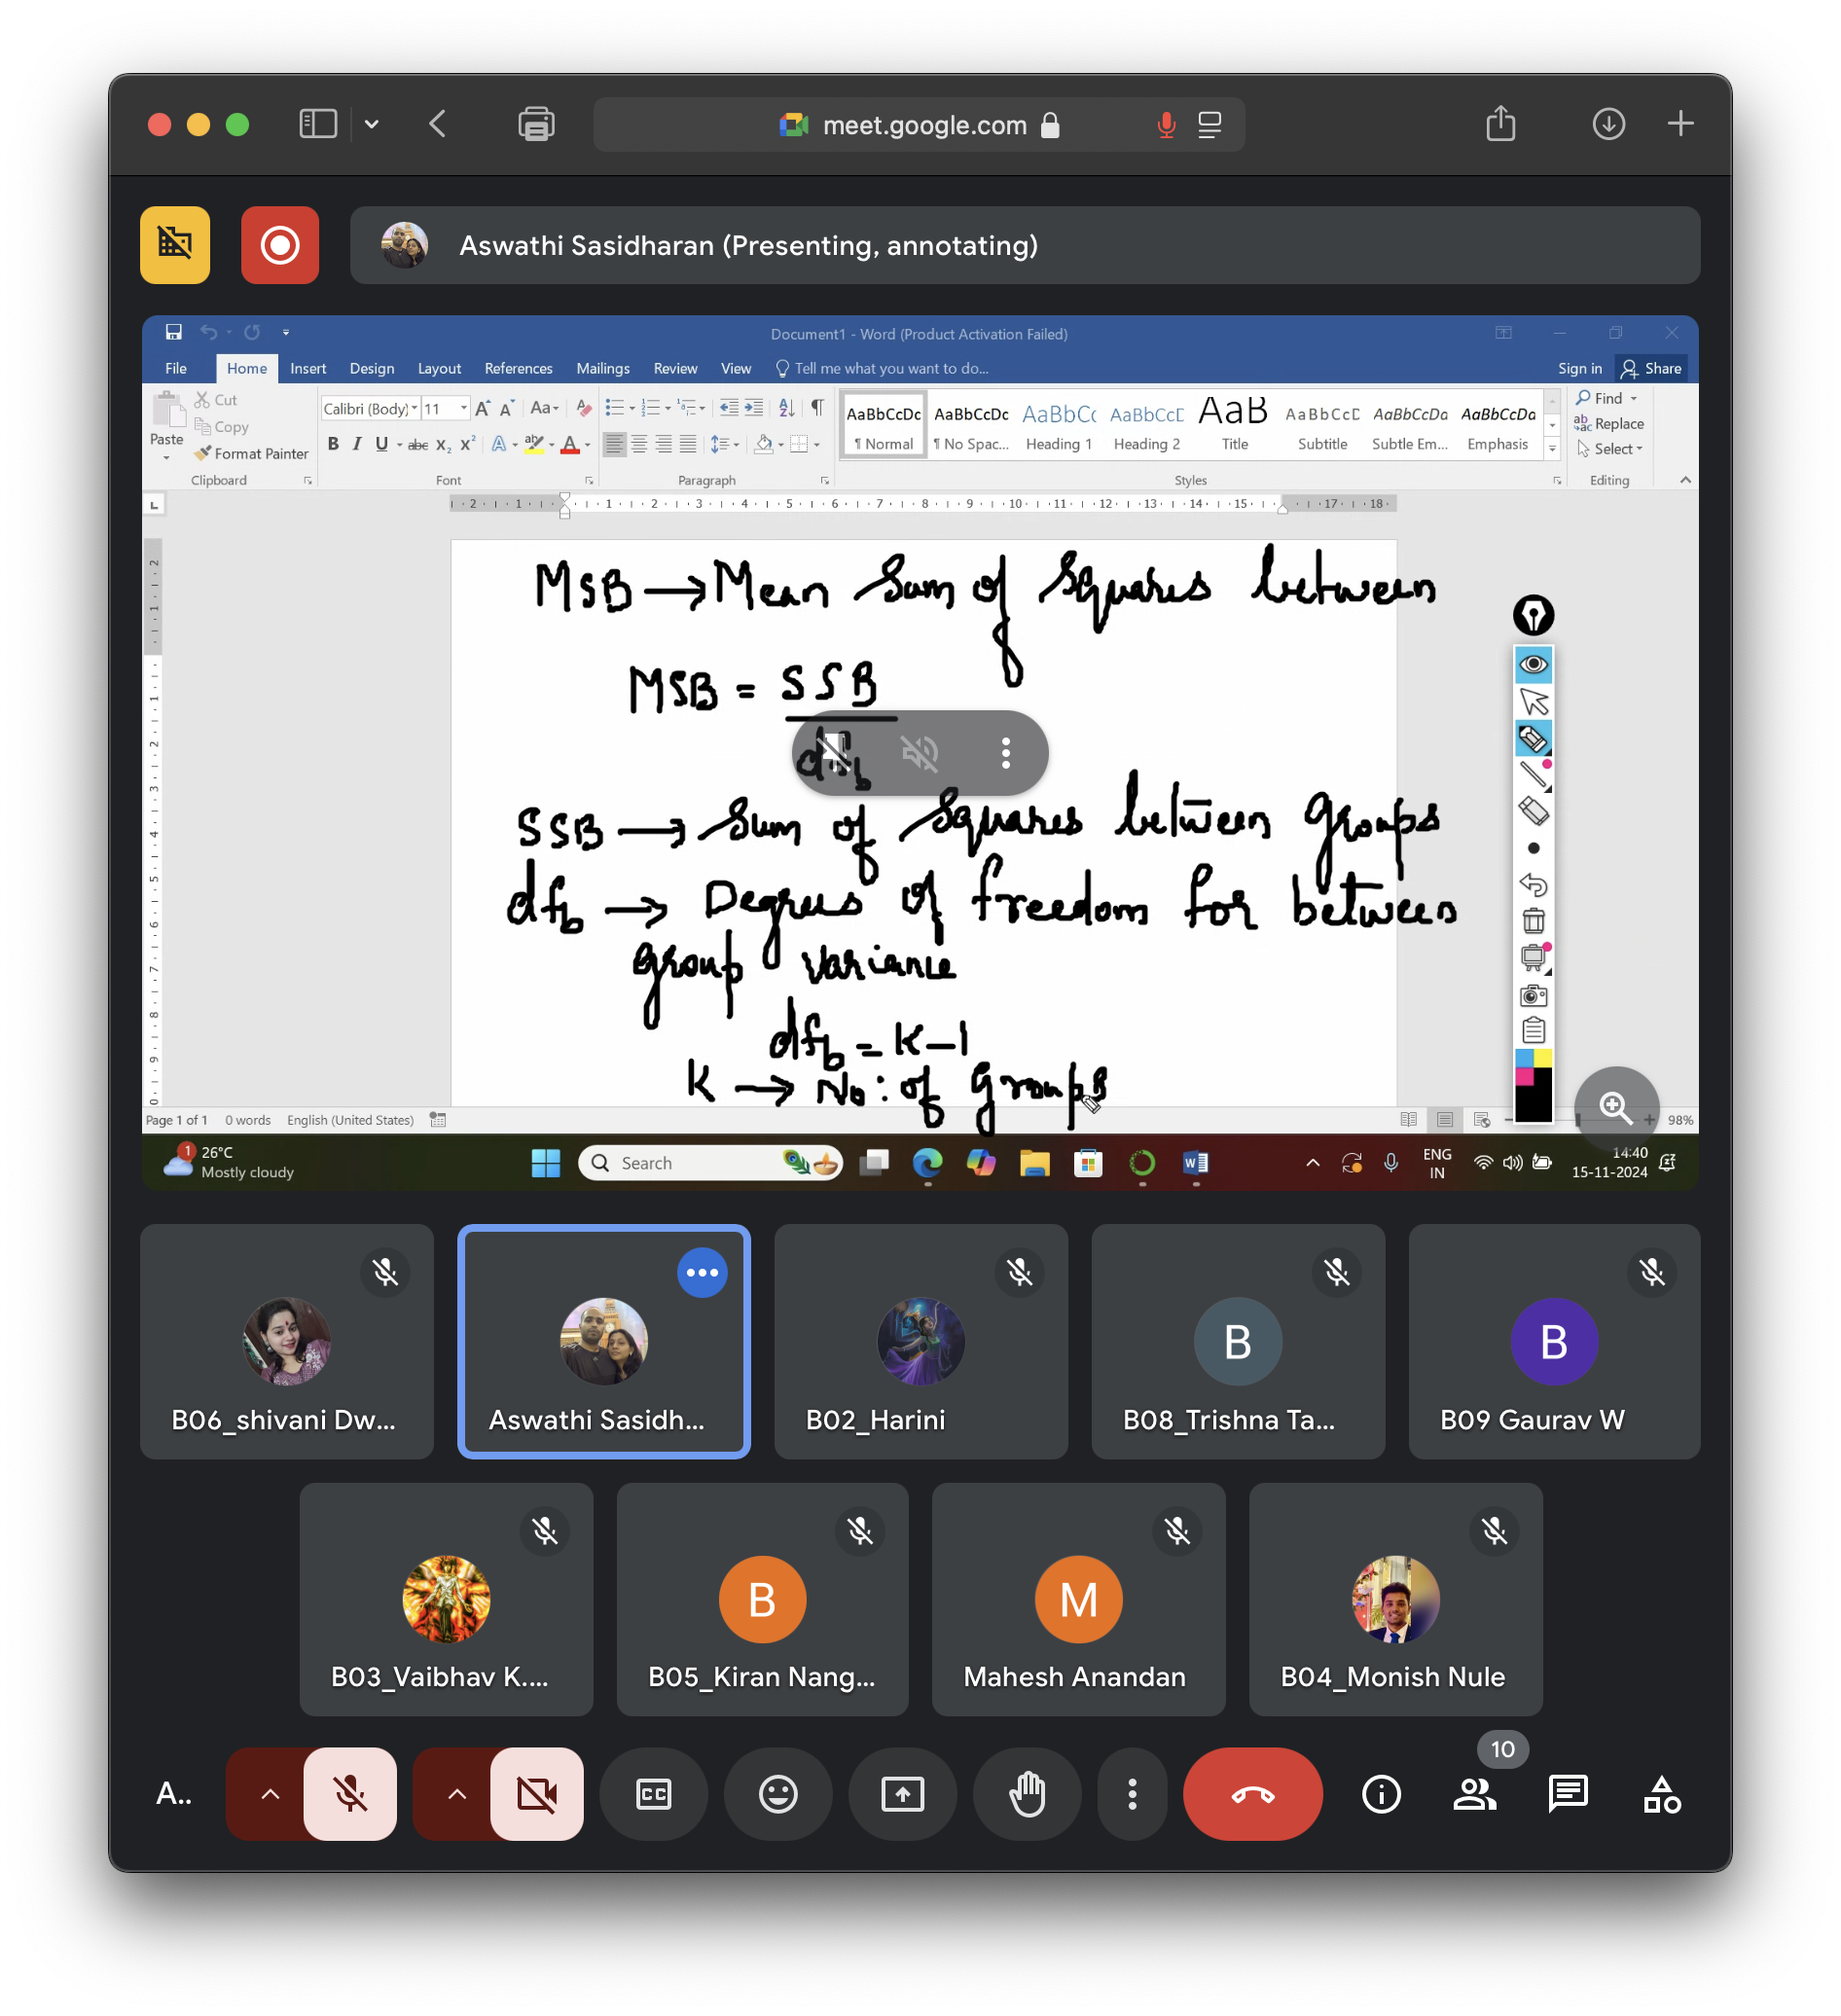 meet.google.com
Aswathi Sasidharan (Presenting, annotating)
Document1 - Word (Product Activation Failed)
File Home Insert Design Layout References Mailings Review View Tell me what you want to do... Sign in Share
Cut
Copy
Format Painter
Paste
Calibri (Body) 11
AaBbCcDc AaBbCcDc AaBbCc AaBbCcE AaB AaBbCcD AaBbCcDa AaBbCcDa
¶ Normal ¶ No Spac... Heading 1 Heading 2 Title Subtitle Subtle Em... Emphasis
Find
Replace
Select
Clipboard Font Paragraph Styles Editing
MSB → Mean Sum of Squares between
g
MSB = SSB
dfb
SSB → Sum of Squares between groups
dfb → Degrees of freedom for between
group variance
dfb = K-1
K → No: of groups
Page 1 of 1 0 words English (United States) 98%
1 26°C
Mostly cloudy
Search
ENG
IN
14:40
15-11-2024
B06_shivani Dw...
Aswathi Sasidh...
B02_Harini
B
B08_Trishna Ta...
B
B09 Gaurav W
B03_Vaibhav K....
B
B05_Kiran Nang...
M
Mahesh Anandan
B04_Monish Nule
10
A..
CC